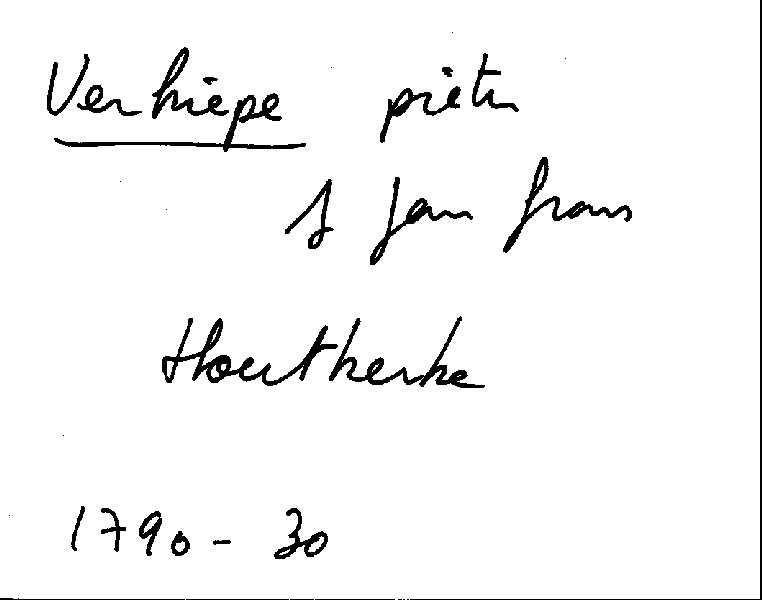 Verhiepe pieter
s Jan frans
Houtkerke
1790 - 30